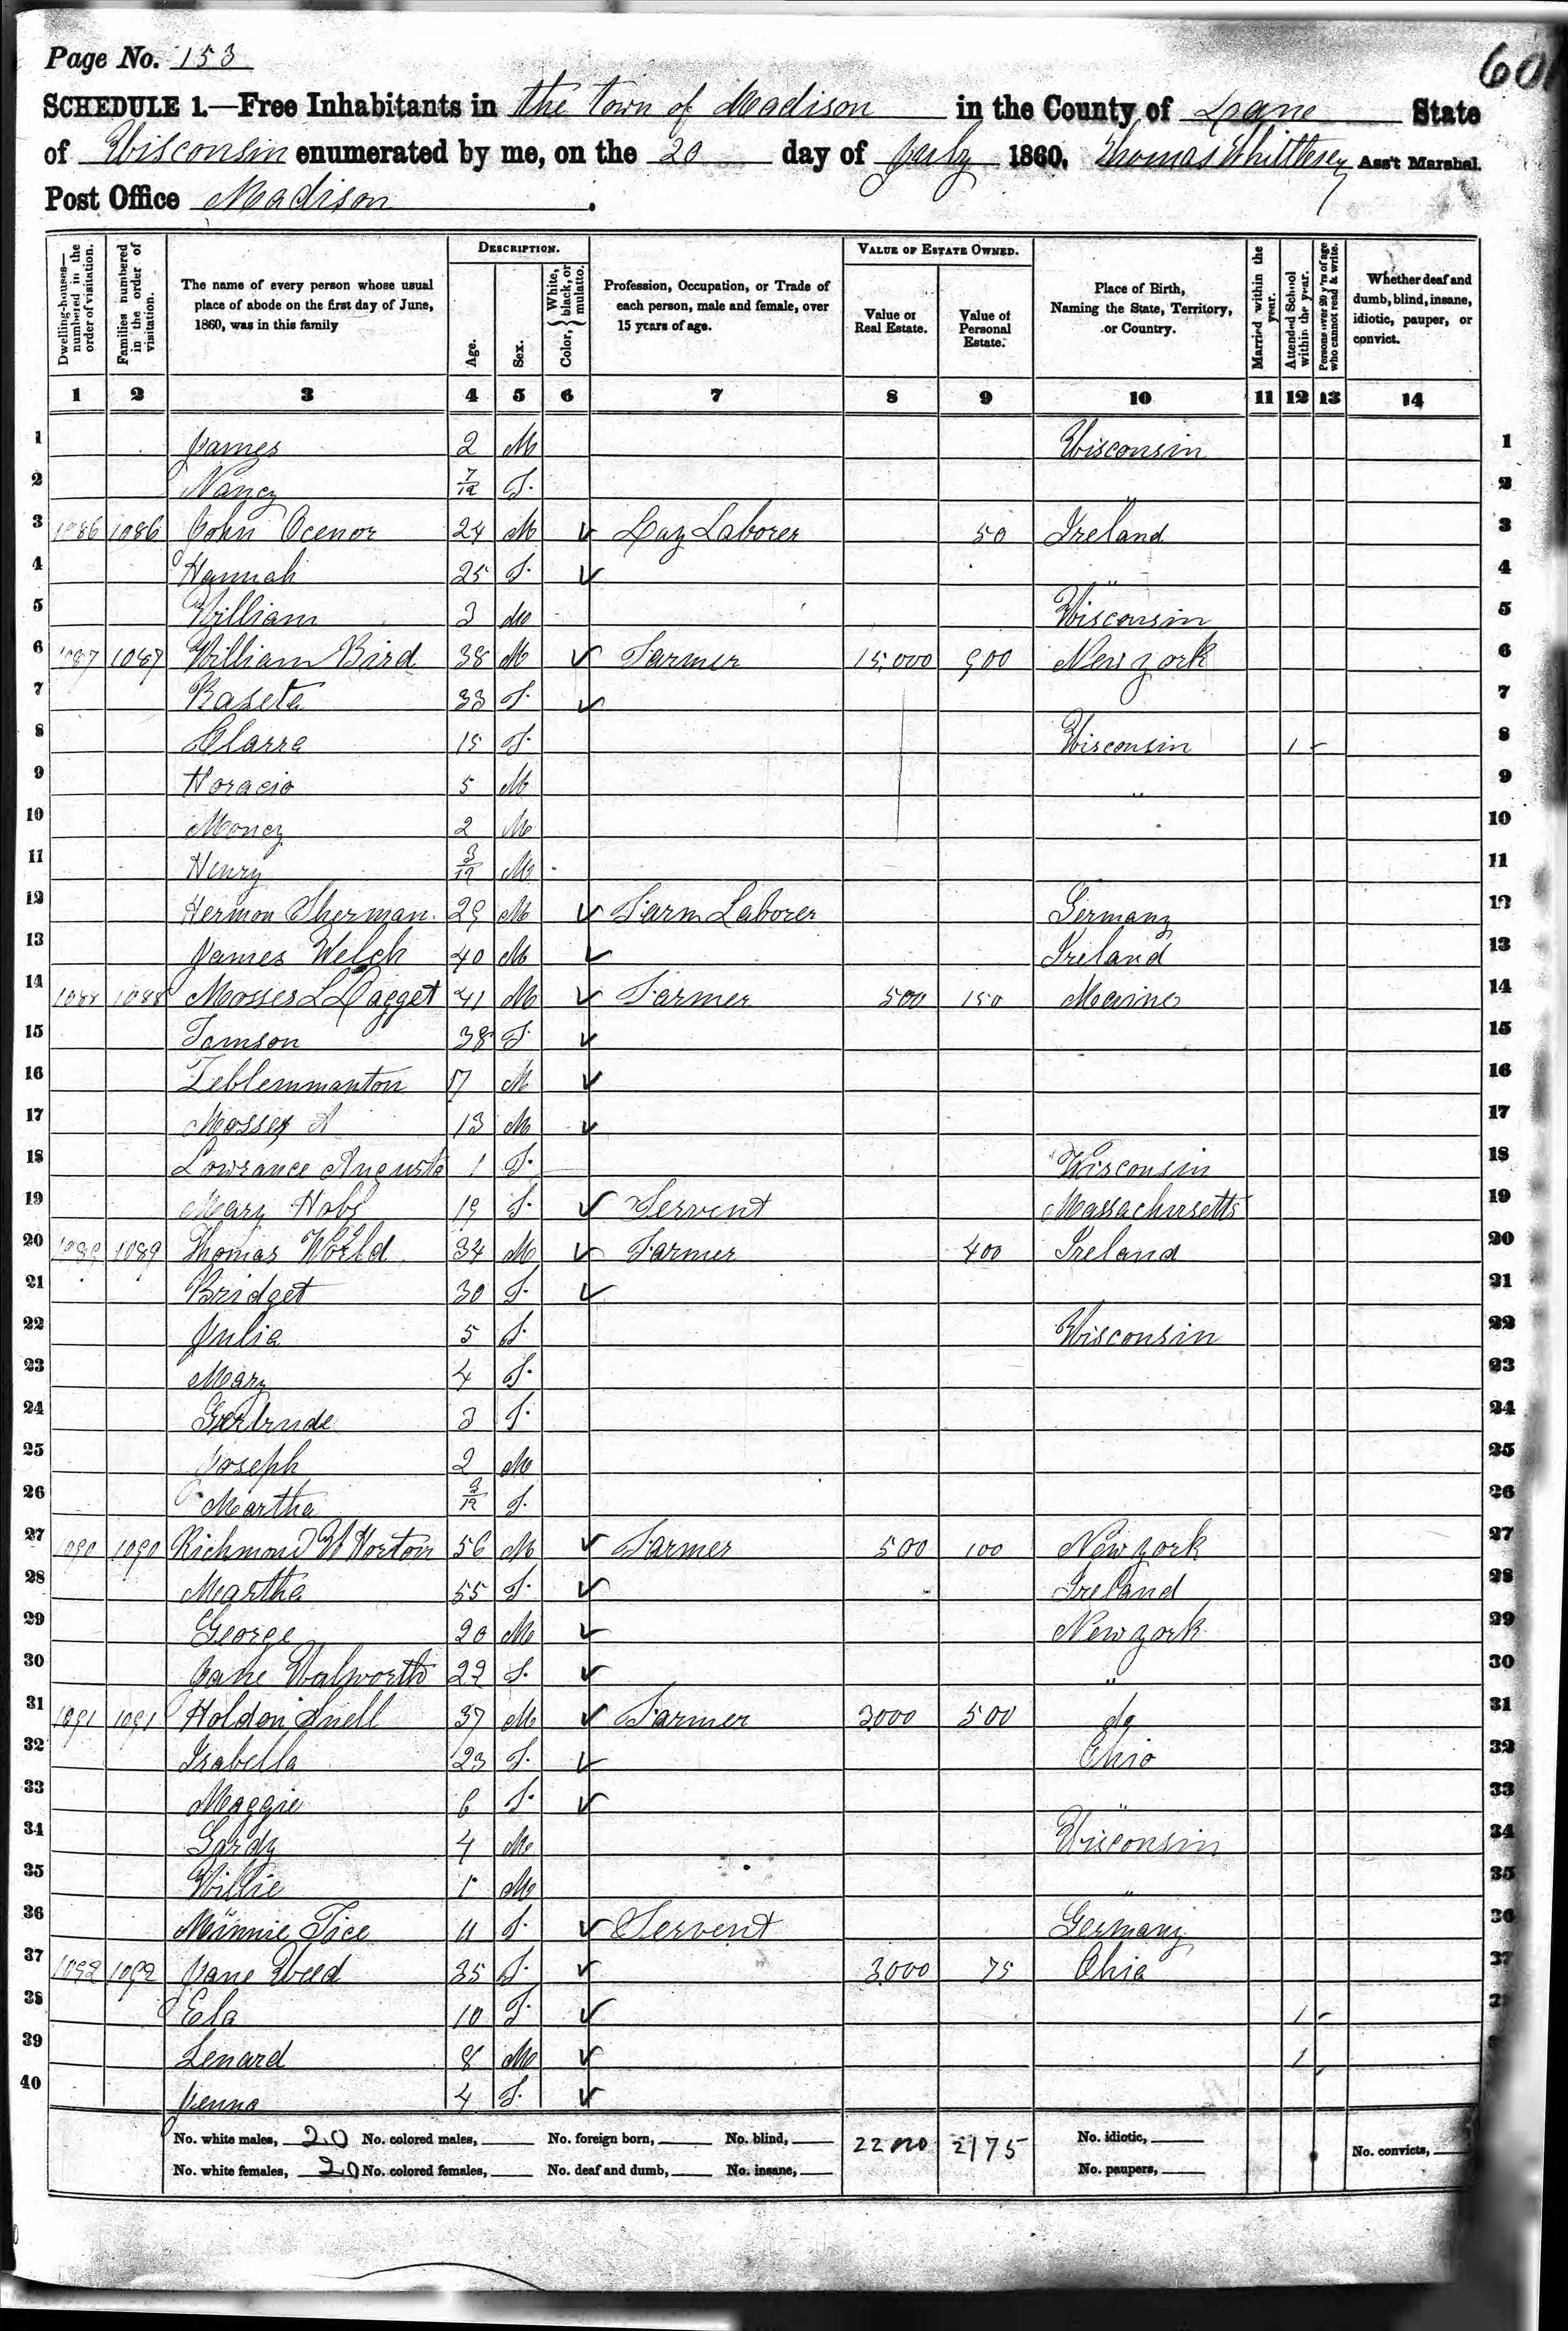 Page No. 153
60
SCHEDULE 1.—Free Inhabitants in the Town of Madison in the County of Dane State
of Wisconsin enumerated by me, on the 20 day of July 1860. Thomas Whittlesey Ass't Marshal.
Post Office Madison.
Dwelling-houses—numbered in the order of visitation.
Families numbered in the order of visitation.
The name of every person whose usual place of abode on the first day of June, 1860, was in this family
DESCRIPTION.
Age.
Sex.
Color, White, black, or mulatto.
Profession, Occupation, or Trade of each person, male and female, over 15 years of age.
VALUE OF ESTATE OWNED.
Value of Real Estate.
Value of Personal Estate.
Place of Birth, Naming the State, Territory, or Country.
Married within the year.
Attended School within the year.
Persons over 20 y'rs of age who cannot read & write.
Whether deaf and dumb, blind, insane, idiotic, pauper, or convict.
1 2 3 4 5 6 7 8 9 10 11 12 13 14
1 James 2 M Wisconsin 1
2 Nancy 7/12 F. " 2
3 1086 1086 John Ocenor 24 M Day Laborer 50 Ireland 3
4 Hannah 25 F. " 4
5 William 3 M Wisconsin 5
6 1087 1087 William Bird 38 M Farmer 15,000 900 New york 6
7 Baseta 33 F. 7
8 Clarra 15 F. Wisconsin 1 8
9 Horacio 5 M " 9
10 Money 2 M 10
11 Henry 3/12 M 11
12 Hermon Sherman 29 M Farm Laborer Germany 12
13 James Welch 40 M Ireland 13
14 1088 1088 Mosses L Dagget 41 M Farmer 500 150 Maine 14
15 Tamson 38 F. 15
16 Zeblemmanton 17 M 16
17 Mosses A 13 M 17
18 Lowrance Augusta 1 F. Wisconsin 18
19 Mary Hobs 19 F. Servent Massachusetts 19
20 1089 1089 Thomas World 34 M Farmer 400 Ireland 20
21 Bridget 30 F. 21
22 Julia 5 F. Wisconsin 22
23 Mary 4 F. 23
24 Gertrude 3 F. 24
25 Joseph 2 M 25
26 Martha 3/12 F. 26
27 1090 1090 Richmond W Horton 56 M Farmer 500 100 New york 27
28 Martha 55 F. Ireland 28
29 George 20 M New york 29
30 Jane Walworth 22 F. " 30
31 1091 1091 Holdon Snell 37 M Farmer 3000 500 do 31
32 Isabella 23 F. Ohio 32
33 Maggie 6 F. " 33
34 Gardy 4 M Wisconsin 34
35 Willie 1 M " 35
36 Minnie Tice 11 F. Servent Germany 36
37 1092 1092 Jane Weed 35 F. 3000 75 Ohio 37
38 Ela 10 F. 1
39 Lenard 8 M 1
40 Jenna 4 F.
No. white males, 20 No. colored males, No. foreign born, No. blind, 22000 2175 No. idiotic, No. convicts,
No. white females, 20 No. colored females, No. deaf and dumb, No. insane, No. paupers,